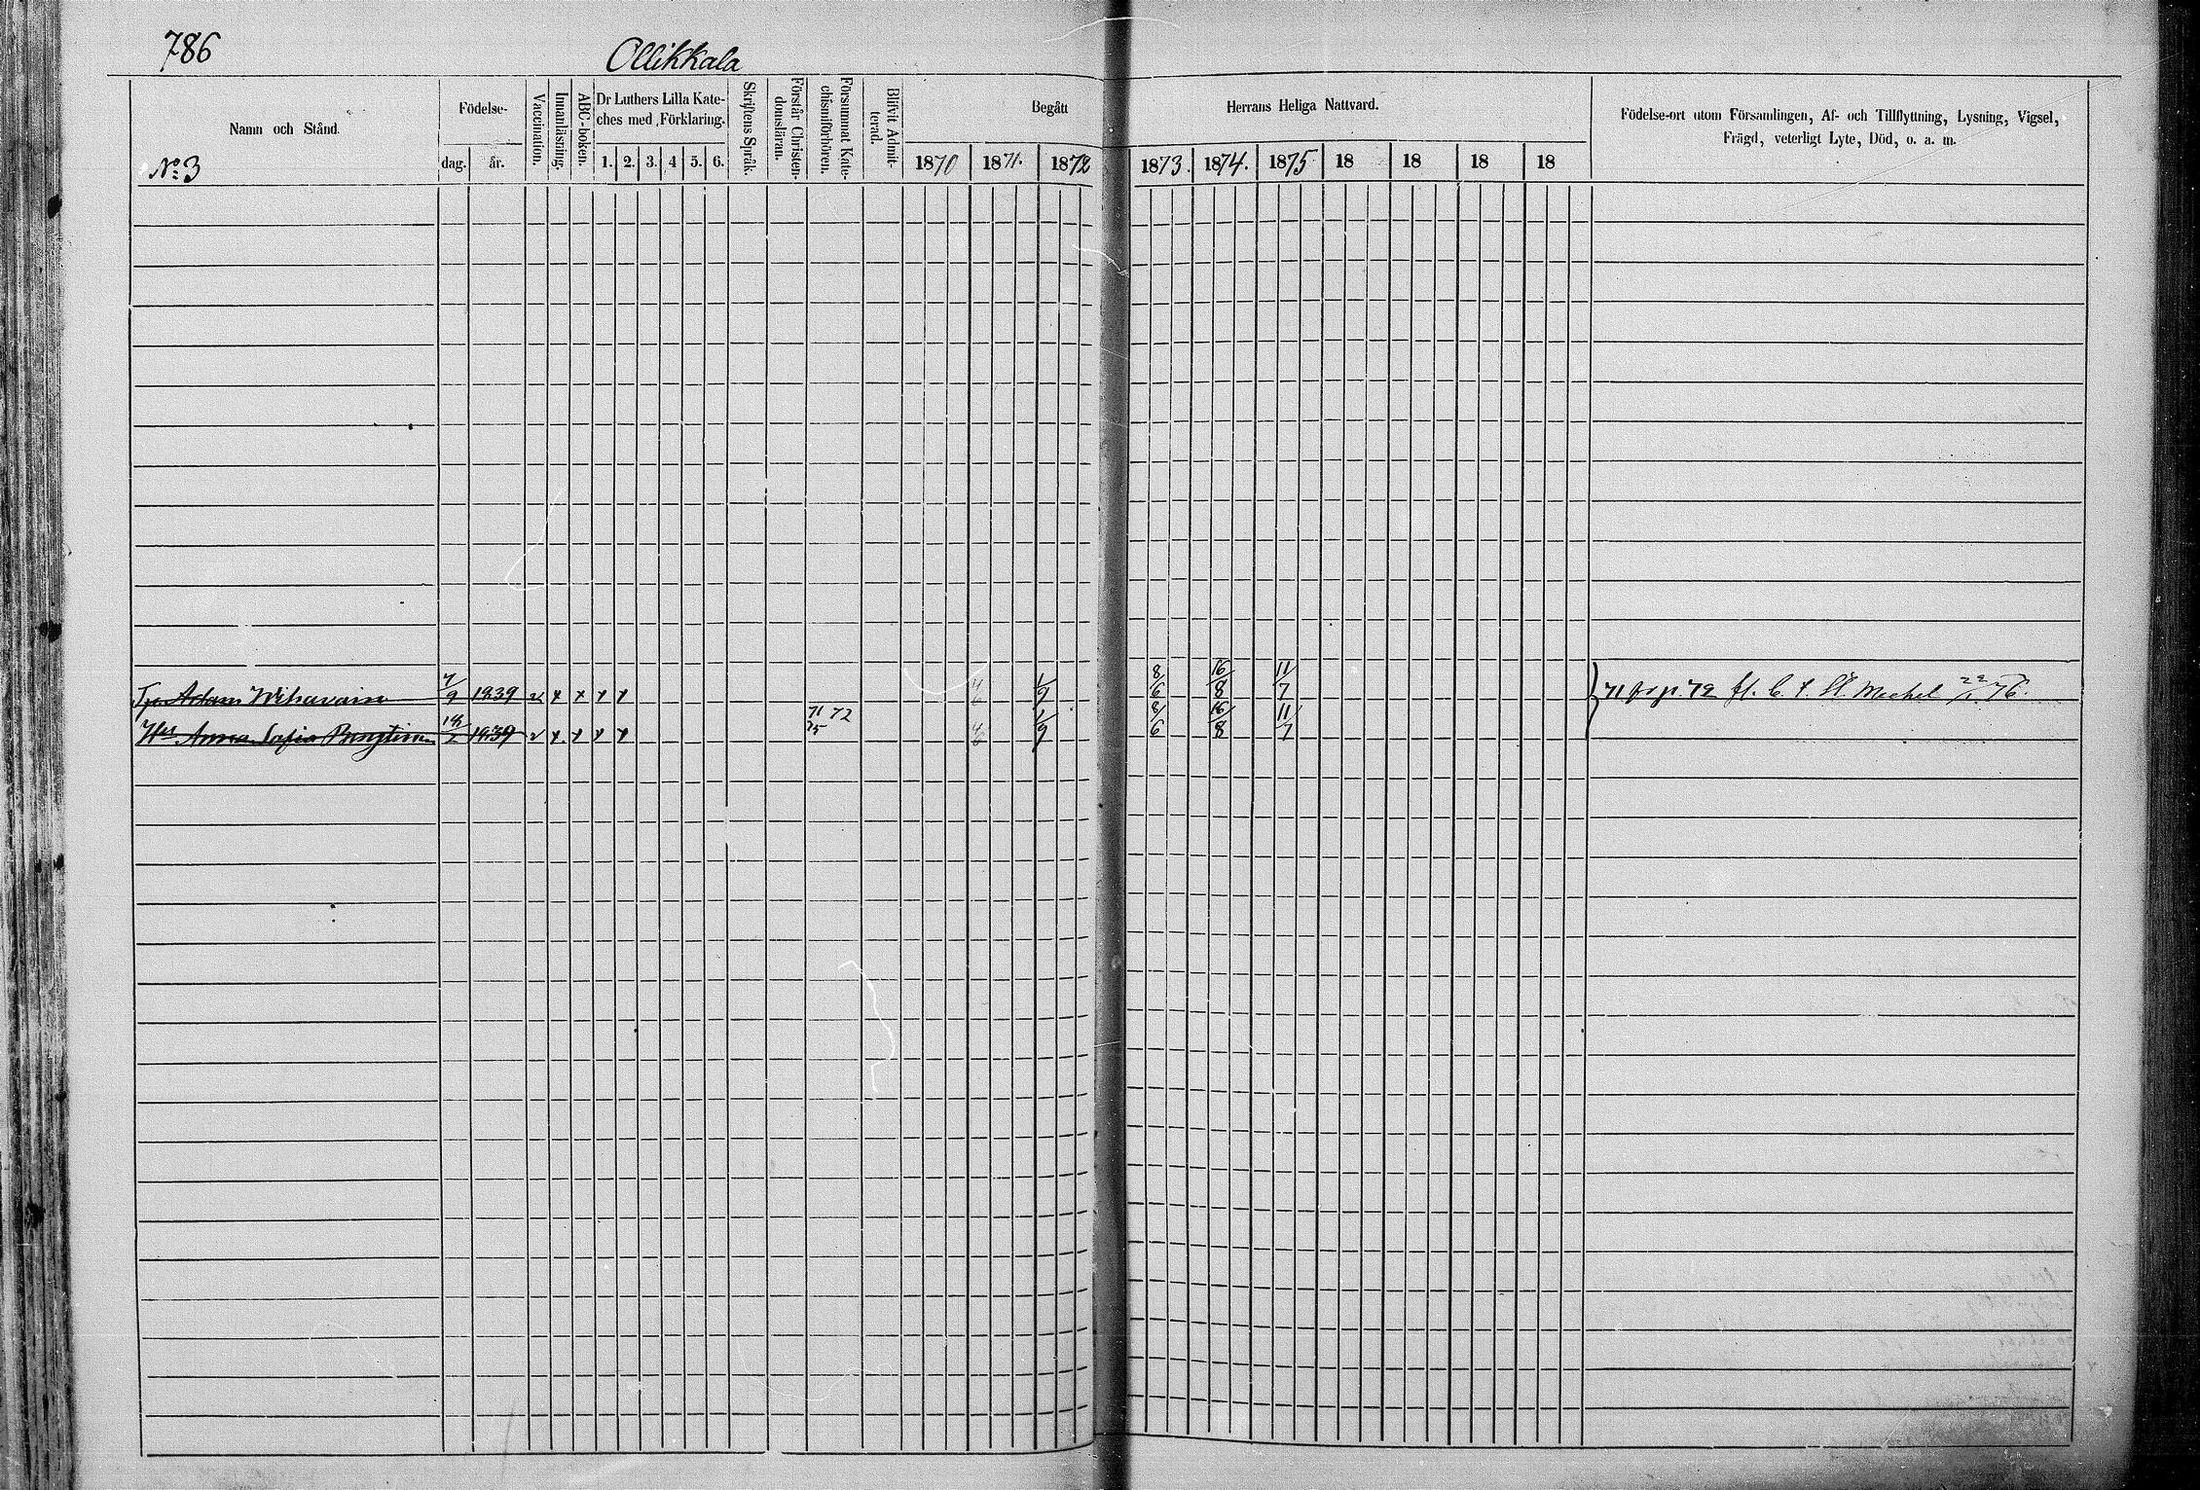 786
Ollikkala
Namn och Stånd.
No: 3
Födelse-
dag. år.
Vaccination.
Innanläsning.
ABC-boken.
Dr Luthers Lilla Kate-
ches med Förklaring.
1. 2. 3. 4 5. 6.
Skriftens Språk.
Förstår Christen-
domsläran.
Försummat Kate-
chismiförhören.
Blifvit Admit-
terad.
Begått
1870 1871. 1872
Herrans Heliga Nattvard.
1873. 1874. 1875 18 18 18 18
Födelse-ort utom Församlingen, Af- och Tillflyttning, Lysning, Vigsel,
Frägd, veterligt Lyte, Död, o. a. m.
Adam Wihavain 7/9 1839 v x x x x 1/9 8/6 16/8 11/7 71 72 fl. St Mechel 76.
Hu Anna Sofia 1839 v x x x x 71 72 1/9 8/6 16/8 11/7